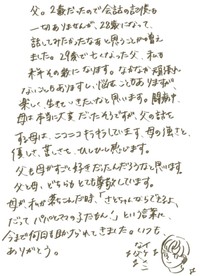 父。2歳だったので会話の記憶も
一切ありませんが、28歳になって、
話してみたかったなぁと思うことが増え
ました。29歳で亡くなった父、私も
来年その歳になります。なかなか頑張れ
ないこともありますし、悩むこともありますが、
楽しく生きていきたいなと思います。闘病中、
母は本当に大変だったそうですが、父の話を
する母は、ニコニコ
優しくて、ひしひし感じます。
父も母がすごく好きだったんだろうなと思います
父と母、どちらもとても尊敬しています。
母が、私が悪さした時、「さとちゃんならできるよ、
だってパパとママの子だもん」という言葉に、
今まで何回も助けられてきました。いつも、
ありがとう。